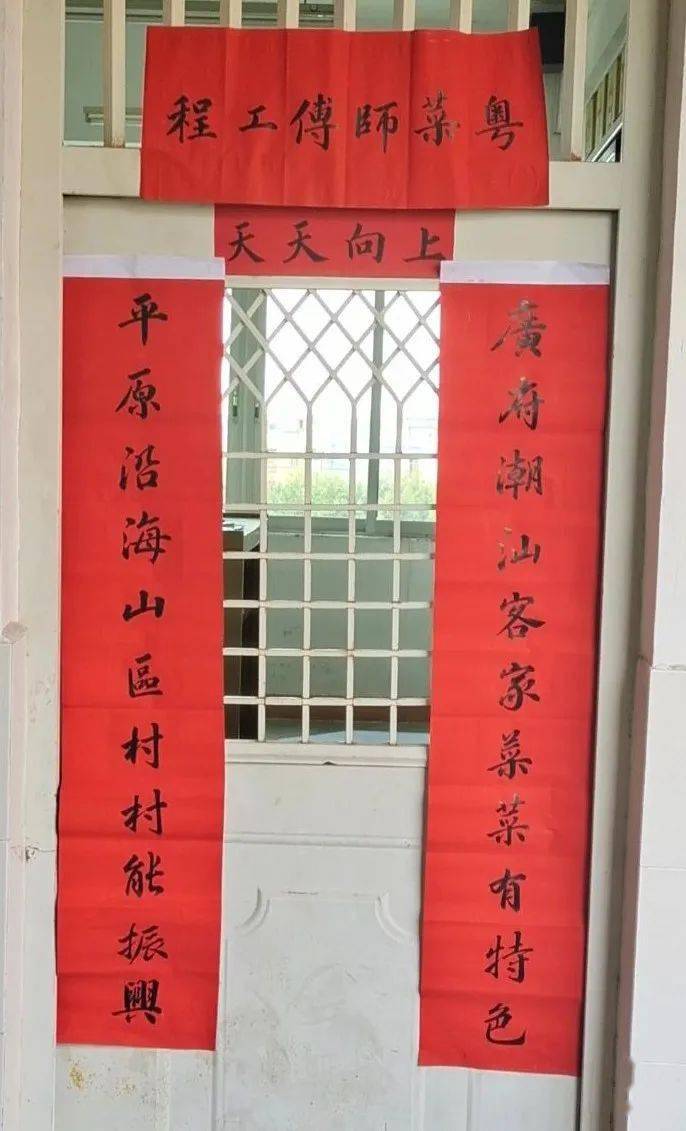 粤菜師傅工程
天天向上
廣府潮汕客家菜菜有特色
平原沿海山區村村能振興